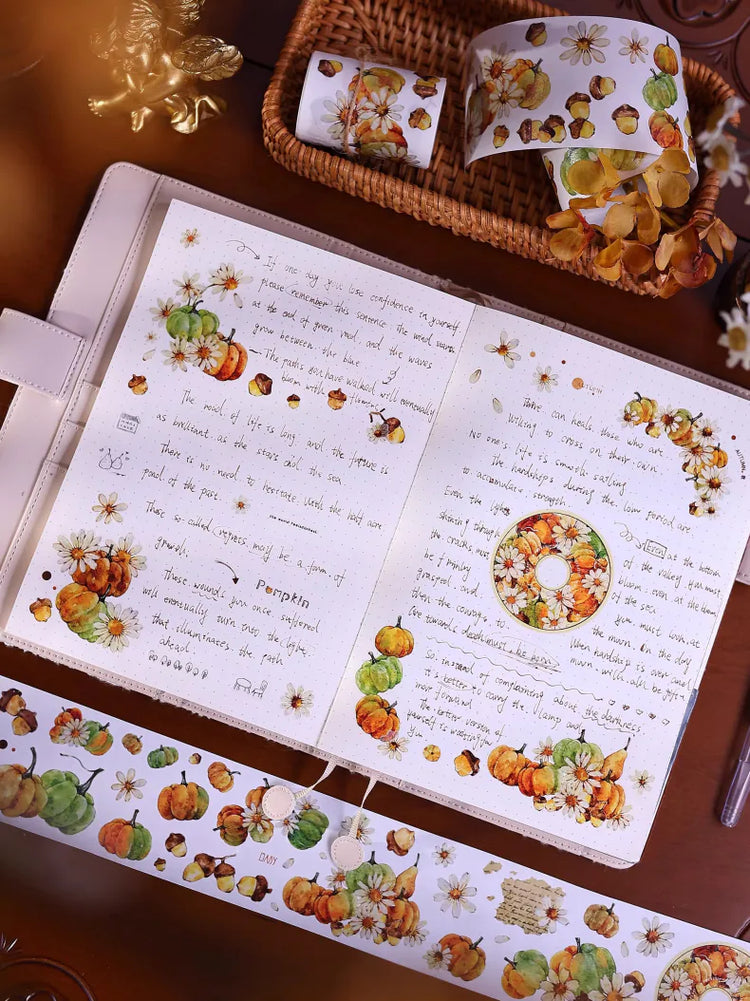 If one day you lose confidence in yourself
please remember this sentence. the wind stars
at the end of green reed, and the waves
grow between the blue.
The paths you have walked will eventually
bloom with flowers.
The road of life is long, and the future is
as brilliant as the stars and the sea.
There is no need to hesitate. Until the half acre
pond of the past.
These so-called regress may be a form of
growth.
These wounds you once suffered
will eventually turn into the light
that illuminates the path
ahead.
Pumpkin
Time can heals those who are
willing to cross on their own.
No one's life is smooth sailing.
The hardships during the low period are
to accumulate strength.
Even the light
shining through
the cracks must
be firmly
grasped and
then the courage to
are towards death must be born
Even at the bottom
of the valley, you must
bloom, even at the bottom
of the sea
you must look at
the moon. On the day
when hardship is over and
moon will also be full
So instead of complaining about the darkness,
it's better to carry the lamp and
move forward.
The better version of
yourself is waiting for
you
AUTUMN
DAISY